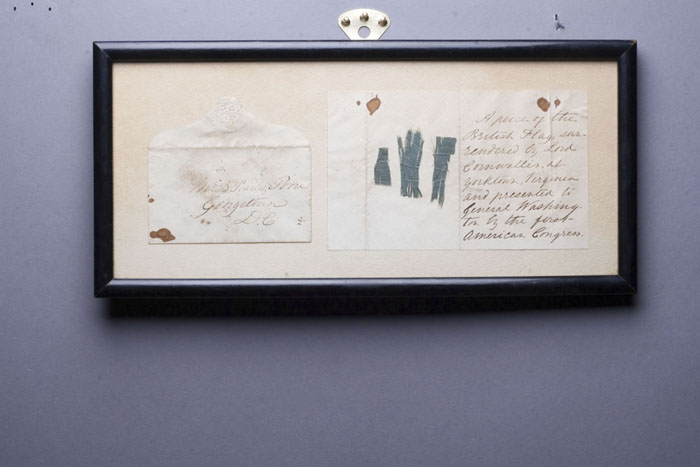 Georgetown
D.C
A peice of the
British Flag, sur-
rendered by Lord
Cornwallis, at
Yorktown, Virginia
and presented to
General Washing-
ton by the first
American Congress.